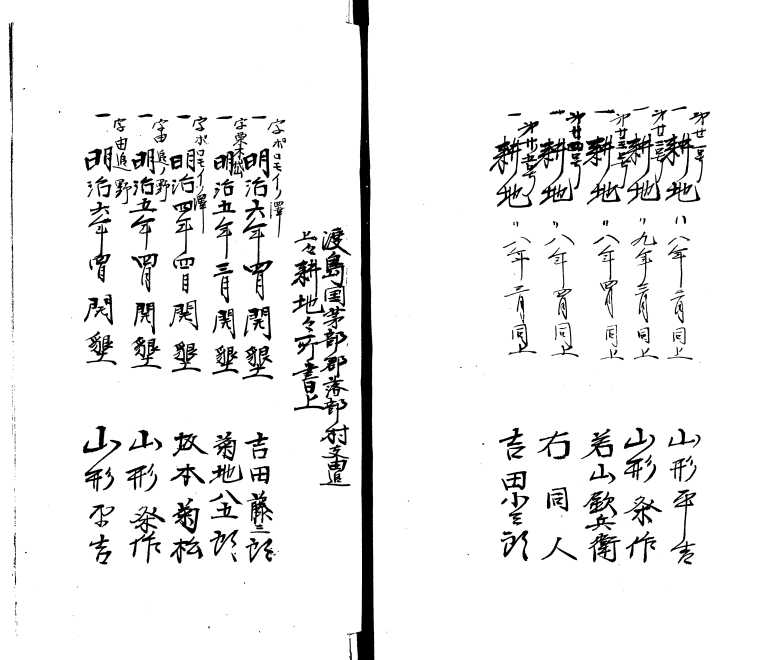 第廿一号
一 耕地 〃八年二月同上 山形平吉
第廿二号
一 耕地 〃九年三月同上 山形祭作
第廿三号
一 耕地 〃八年四月同上 若山欽兵衛
第廿四号
一 耕地 〃八年四月同上 右同人
第廿五号
一 耕地 〃八年三月同上 吉田
渡島国茅部郡落部村
耕地
字ポロモイノ澤
一 明治六年四月開墾 吉田藤三郎
字栗木岱
一 明治五年三月開墾 菊地八五郎
字ポロモイノ澤
一 明治四年四月開墾 坂本菊松
字由追ノ野
一 明治五年四月開墾 山形祭作
字由追野
一 明治六年四月開墾 山形平吉